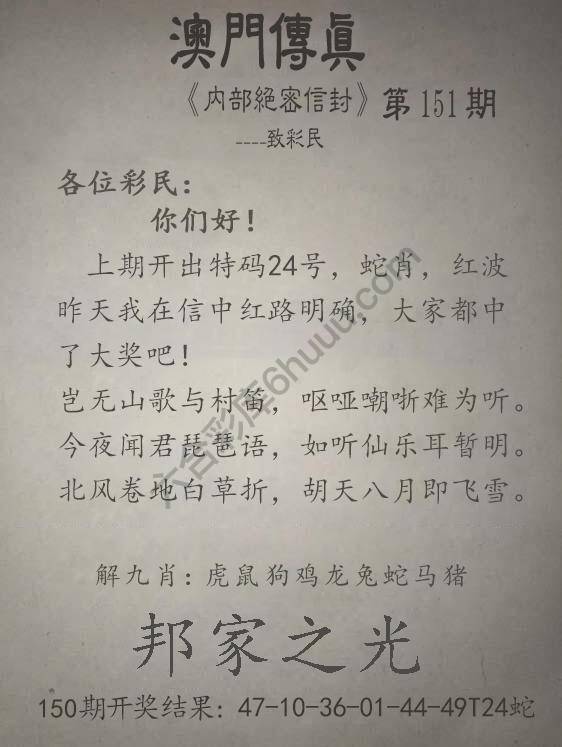 澳門傳眞
《内部絕密信封》第151期
----致彩民
各位彩民：
你们好！
上期开出特码24号，蛇肖，红波
昨天我在信中红路明确，大家都中
了大奖吧！
岂无山歌与村笛，呕哑嘲哳难为听。
今夜闻君琵琶语，如听仙乐耳暂明。
北风卷地白草折，胡天八月即飞雪。
六合彩库6huuu.com
解九肖：虎鼠狗鸡龙兔蛇马猪
邦家之光
150期开奖结果：47-10-36-01-44-49T24蛇